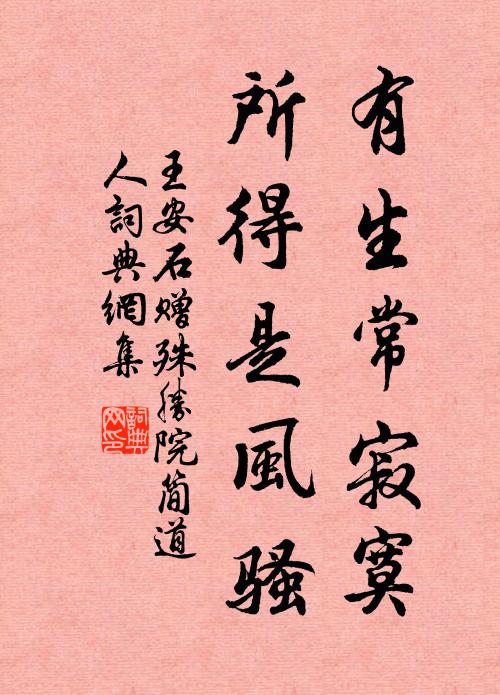 有生常寂寞
所得是風騷
王安石贈殊勝院簡道
人詞典網集
詞典
网印